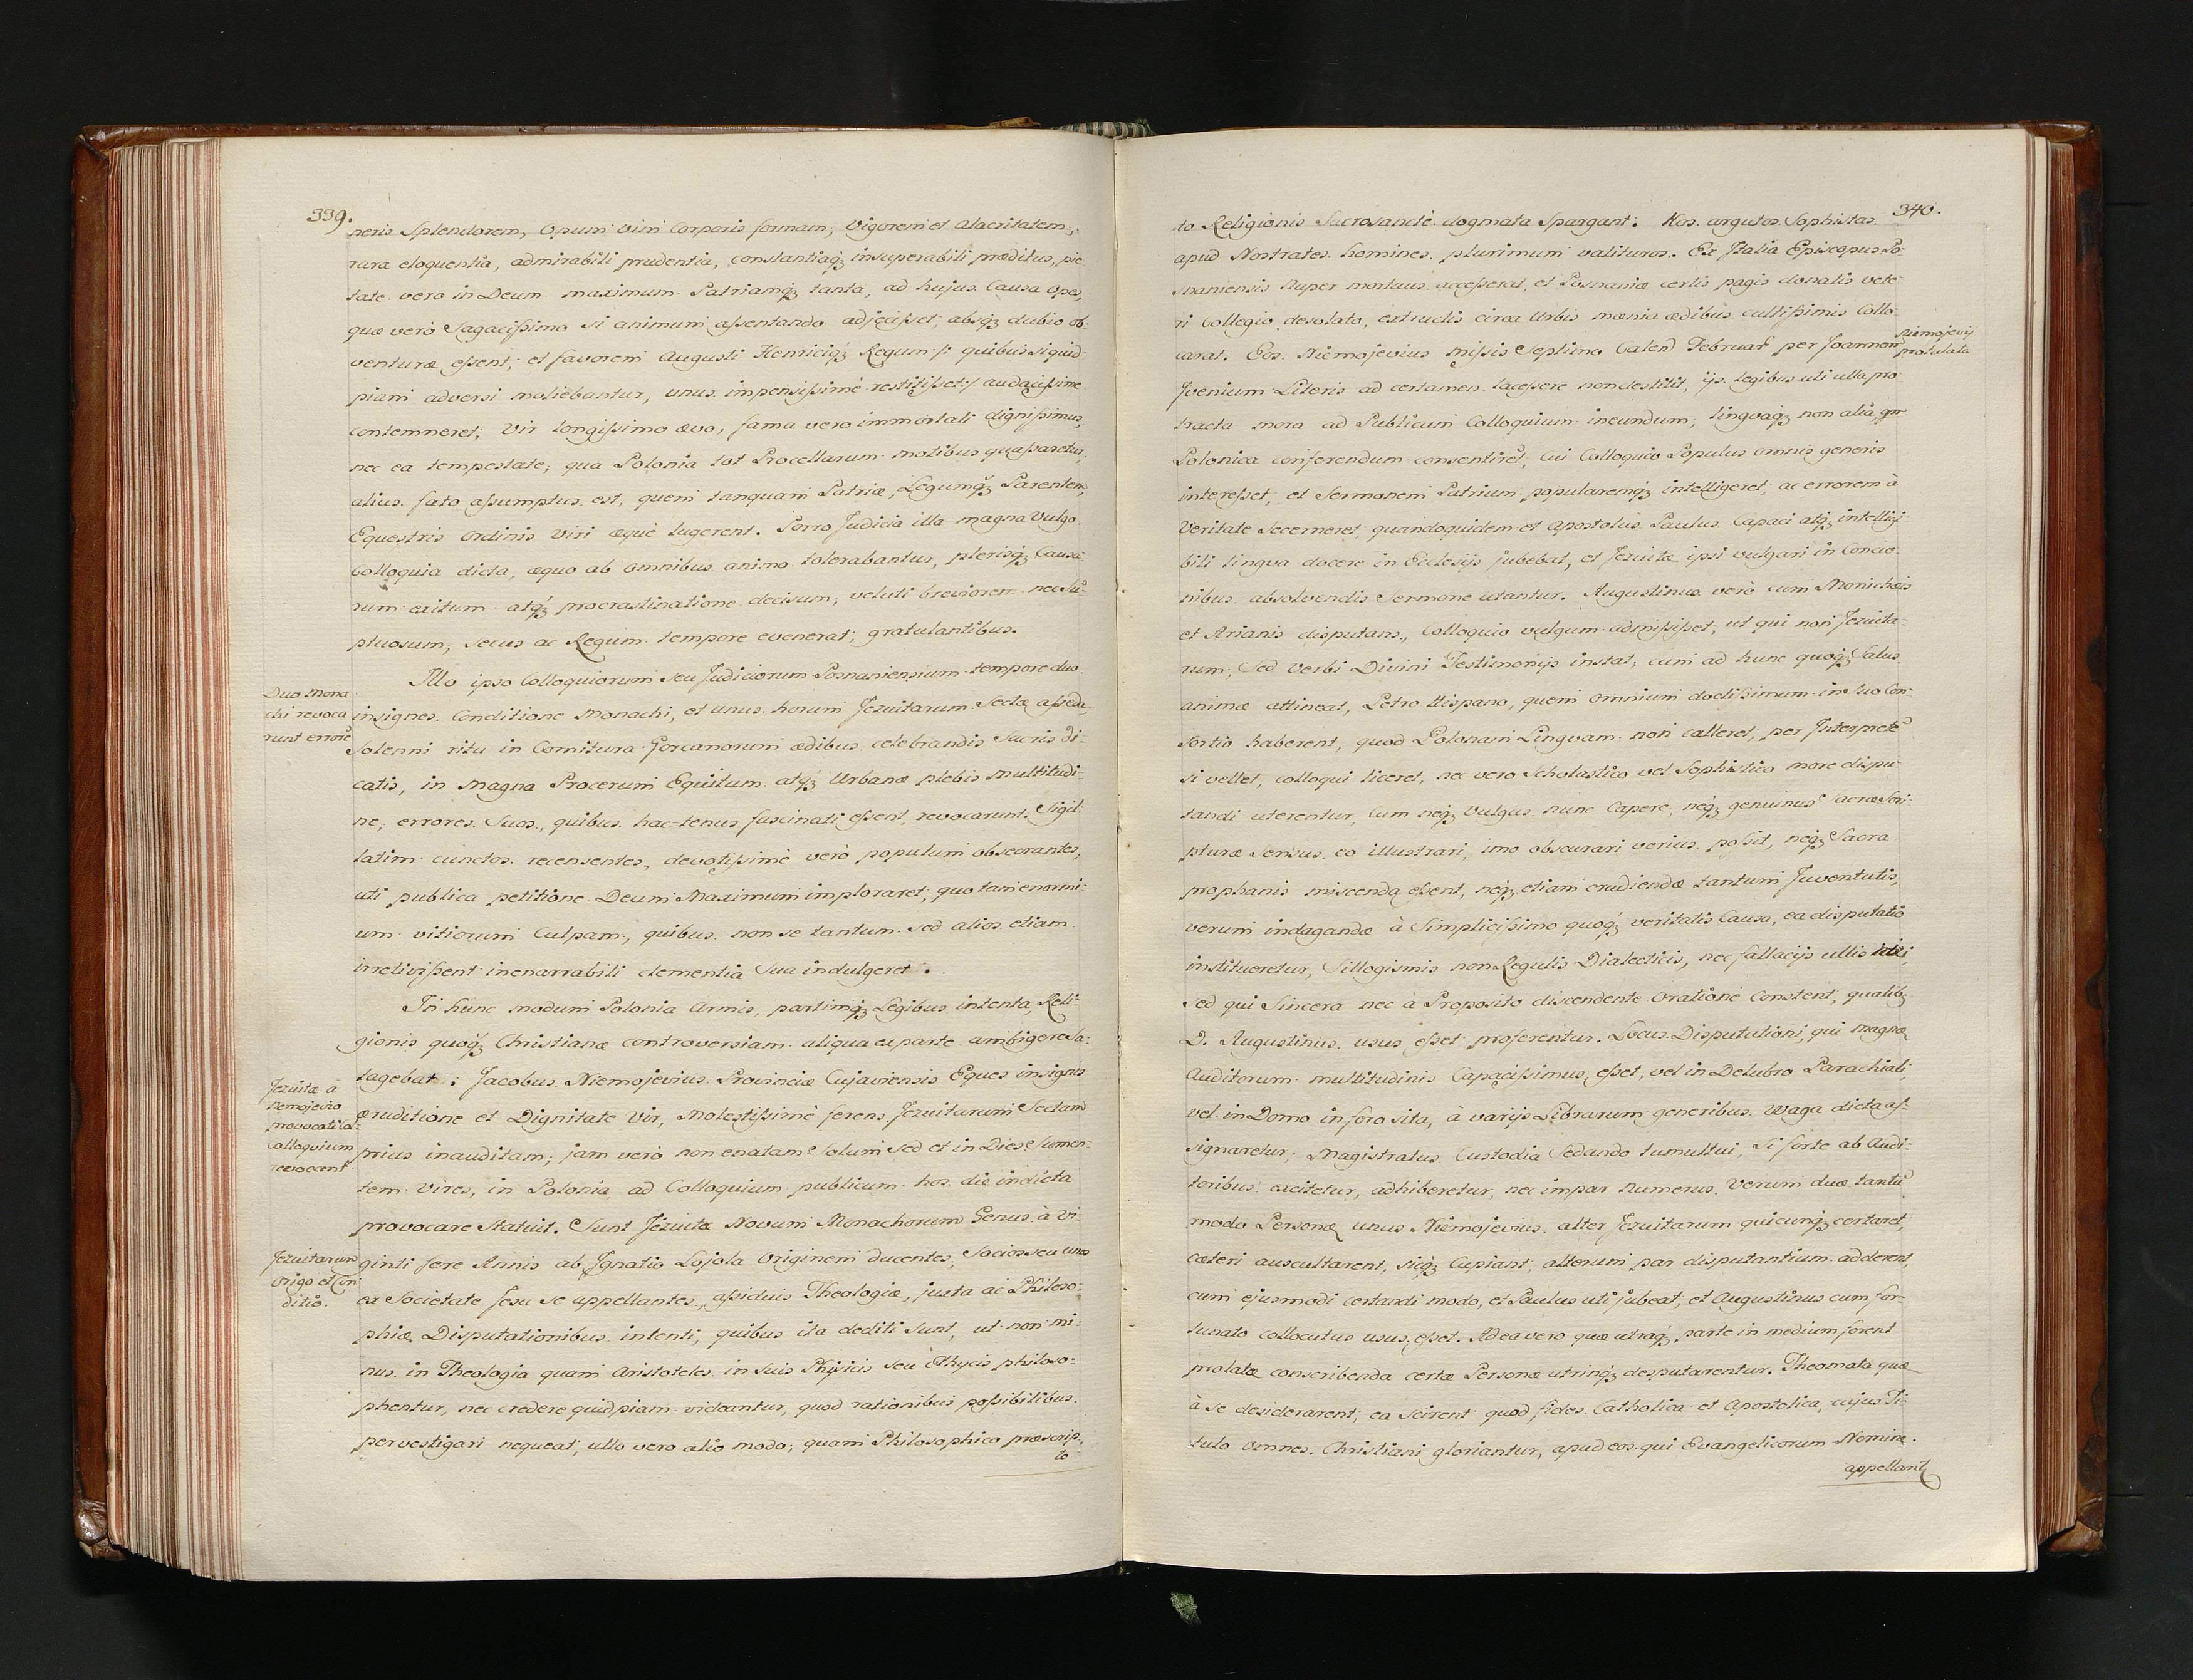 339.
neris Splendorem, Opum Vim Corporis formam, Vigorem et Alacritatem,
rara eloquentia, admirabili prudentia, constantiaq́ꝫ insuperabili præditus, pie
tate vero in Deum maximum Patriamq́ꝫ tanta, ad hujus Causa Opes,
quæ verò Sagacißimo si animum aßentando adjecißet, absq́ꝫ dubio ob
venturæ eßent, et favorem Augusti Henriciq́ꝫ Regum /: quibus siquid
piam adversi moliebantur, unus impensißimè restitißet :/ audacißime
contemneret, Vir longißimo ævo, fama vero immortali dignißimus,
nec ea tempestate, qua Polonia tot Procellarum motibus quaßaretur,
alius fato aßumptus est, quem tanquam Patriæ, Legumq́ꝫ Parentem,
Equestris Ordinis Viri æquè lugerent. Porro Judicia illa magna Vulgo
Colloquia dicta, æquo ab omnibus animo tolerabantur, plerisq́ꝫ Causa-
rum exitum atq́ꝫ procrastinatione decisum, veluti breviorem nec Su-
ptuosum, secus ac Regum tempore evenerat, gratulantibus.
Duo Mona
chi revoca
runt errorẽ
Illo ipso Colloquiorum seu Judiciorum Posnaniensium tempore duo
insignes Conditione Monachi, et unus horum Jezuitarum Sectæ aßecla,
Solenni ritu in Comitum Gorcanorum ædibus celebrandis Sacris di-
catis, in Magna Procerum Equitum atq́ꝫ Urbanæ plebis Multitudi-
ne, errores Suos, quibus hac-tenus fascinati eßent, revocarunt, Sigil-
latim cunctos recensentes, devotißimè verò populum obsecrantes,
uti publica petitione Deum Maximum imploraret, quo tam enormi-
um vitiorum Culpam, quibus non se tantum sed alios etiam
irretivißent inenarrabili clementia Sua indulgeret.
In hunc modum Polonia Armis, partimq́ꝫ Legibus intenta, Reli-
gionis quoq́ꝫ Christianæ controversiam aliqua ex parte ambigere Sa-
Jezuitæ à
Nemojevio
provocati ad
Colloquium
tagebat: Jacobus Niemojevius Provinciæ Cujaviensis Eques insignis
æruditione et Dignitate Vir, Molestißimè ferens Jezuitarum Sectam
prius inauditam, jam verò non enatam Solum sed et in Dies Sumen-
tem Vires, in Polonia ad Colloquium publicum hos die indicta
provocare Statuit. Sunt Jezuitæ Novum Monachorum Genus à Vi-
Jezuitarum
Origo et Con
ditio.
ginti fere Annis ab Ignatio Lojola Originem ducentes, Socios seu unos
ex Societate Jesu se appellantes, aßiduis Theologiæ, juxta ac Philoso-
phiæ Disputationibus intenti, quibus ita dediti Sunt, ut non mi-
nus in Theologia quam Aristoteles in Suis Phisicis seu Ethycis philoso-
phentur, nec credere quidpiam videantur, quod rationibus poßibilibus
pervestigari nequeat, ullo vero alio modo, quam Philosophico præscrip-
to
340.
to Religionis Sacrosanctè dogmata Spargant. Hos argutos Sophistas
apud Nostrates homines plurimum valituros. Ex Italia Episcopus Po-
snaniensis Nuper mortuus acceßerat, et Posnaniæ certis pagis donatis vete-
ri Collegio desolato, extructis circa Urbis mænia ædibus cultißimis Collo-
Niemojevij
prolulata
carat. Eos Niemojevius mißis Septimo Calend Februar per Joannem
Jvenium Literis ad certamen laceßere non destitit, ijs legibus uti ulla pro-
tracta mora ad Publicum Colloquium ineundum, linguaq́ꝫ non alia qm̃
Polonica conferendum consentirẽt, cui Colloquio Populus omnis generis
intereßet, et Sermonem Patrium popularemq́ꝫ intelligeret, ac errorem à
Veritate Secerneret, quandoquidem et Apostolus Paulus Capaci atq́ꝫ intelligi
bili lingva docere in Ecclesijs jubebat, et Jezuitæ ipsi vulgari in Concio-
nibus absolvendis Sermone utantur. Augustinus verò cum Monichæis
et Arianis disputans, Colloquio vulgum admißißet, ut qui non Jezuita-
rum, Sed Verbi Divini Testimonijs instat, cum ad hunc quoq́ꝫ Salus
animæ attineat, Petro Hispano, quem omnium doctißimum in Suo Con-
sortio haberent, quod Polonam Linguam non calleret, per Interpretẽ
si vellet, colloqui liceret, nec vero Scholastico vel Sophistico more dispu-
tandi uterentur, Cum neq́ꝫ Vulgus hunc Capere, neq́ꝫ genuinus Sacræ Scri-
pturæ Sensus eo illustrari, imo obscurari verius poßit, neq́ꝫ Sacra
prophanis miscenda eßent, neq́ꝫ etiam erudiendæ tantum Juventutis,
verum indagandæ à Simplicißimo quoq́ꝫ veritatis Causa, ea disputatio
institueretur, Sillogismis non Regulis Dialecticis, nec fallacijs ullis
sed qui Sincera nec à Proposito discendente Oratione Constent, qualibꝫ
D. Augustinus usus eßet proferentur. Locus Disputationi, qui magnæ
Auditorum multitudinis Capacißimus eßet, vel in Delubro Parachiali,
vel in Domo in foro sita, à varijs Librarum generibus Waga dicta aß-
signaretur, Magistratus Custodia Sedando tumultui, Si forte ab Audi-
toribus excitetur, adhiberetur, nec impar Numerus Verum duæ tantũ
modo Personæ unus Niemojevius alter Jezuitarum quicunq́ꝫ certaret,
cæteri auscultarent, sicq́ꝫ Cupiant, alterum par disputantium adderent,
cum ejusmodi certandi modo, et Paulus uti jubeat, et Augustinus cum for-
tunato collocutus usus eßet. Ad ea vero quæ utraq́ꝫ parte in medium forent
prolata conscribenda certæ Personæ utrinq́ꝫ desputarentur. Theomata quæ
à se desiderarent, ea Scirent quod fides Catholica et Apostolica, cujus Ti-
tulo Omnes Christiani gloriantur, apud eos qui Evangelicorum Nomine
appellant